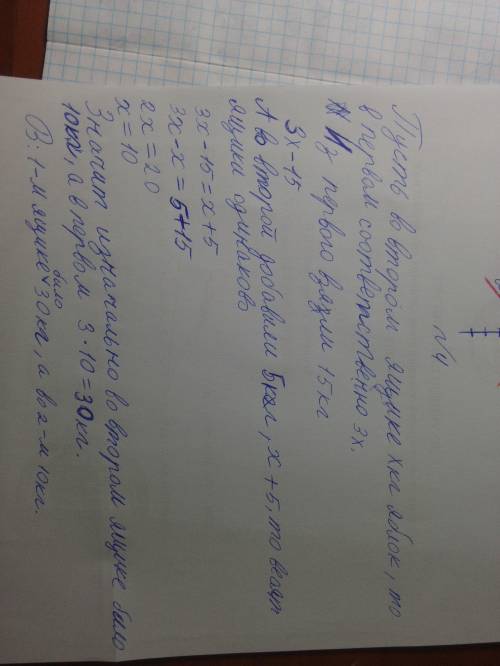 N4
Пусть во втором ящике хкг яблок, то
в первом соответственно 3х.
Из первого взяли 15кг
3х-15
А во второй добавили 5кг, х+5, то
ящики одинаково
3х-15=х+5
3х-х=5+15
2х=20
х=10
Значит изначально во втором ящике было
10кг, а в первом 3·10=30кг.
В: 1-м ящике было 30кг, а во 2-м 10кг.